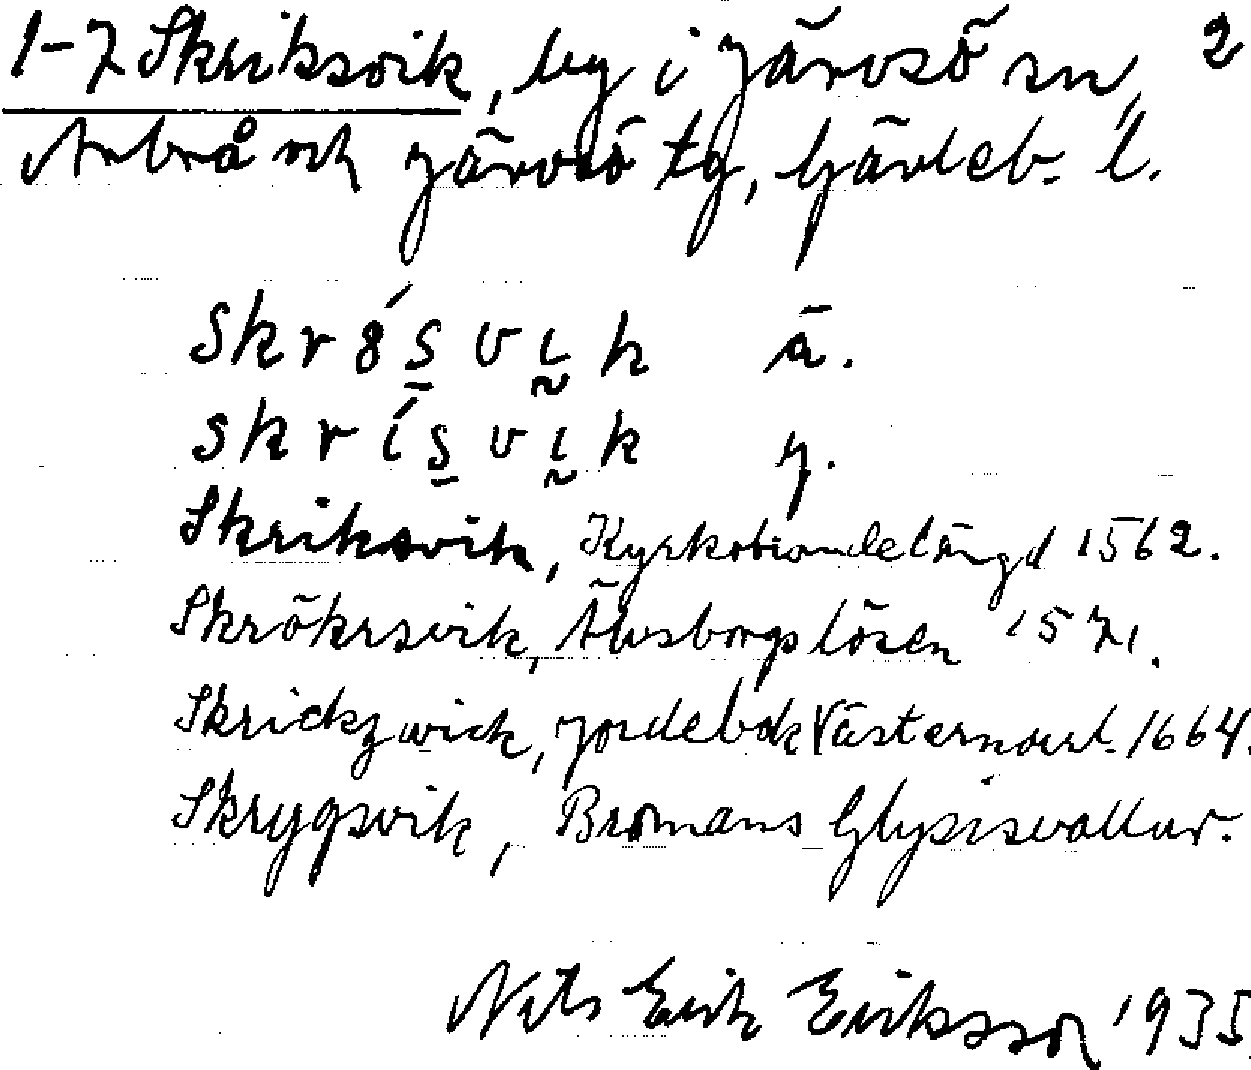 1-7 Skriksvik, by i Järvsö sn, 2
Arbrå och Järvsö tg, Gävleb. l.
skrȣ́s̱vɩ̰k ä.
skrís̱vɩ̰k y.
Skriksvik, Kyrkotiondelängd 1562.
Skrökrsvik, Älvsborgs lösen 1571.
Skrickzwich, Jordebok Västernorrl. 1664.
Skrygsvik, Bromans Glysisvallur.
Nils Erik Eriksson 1935